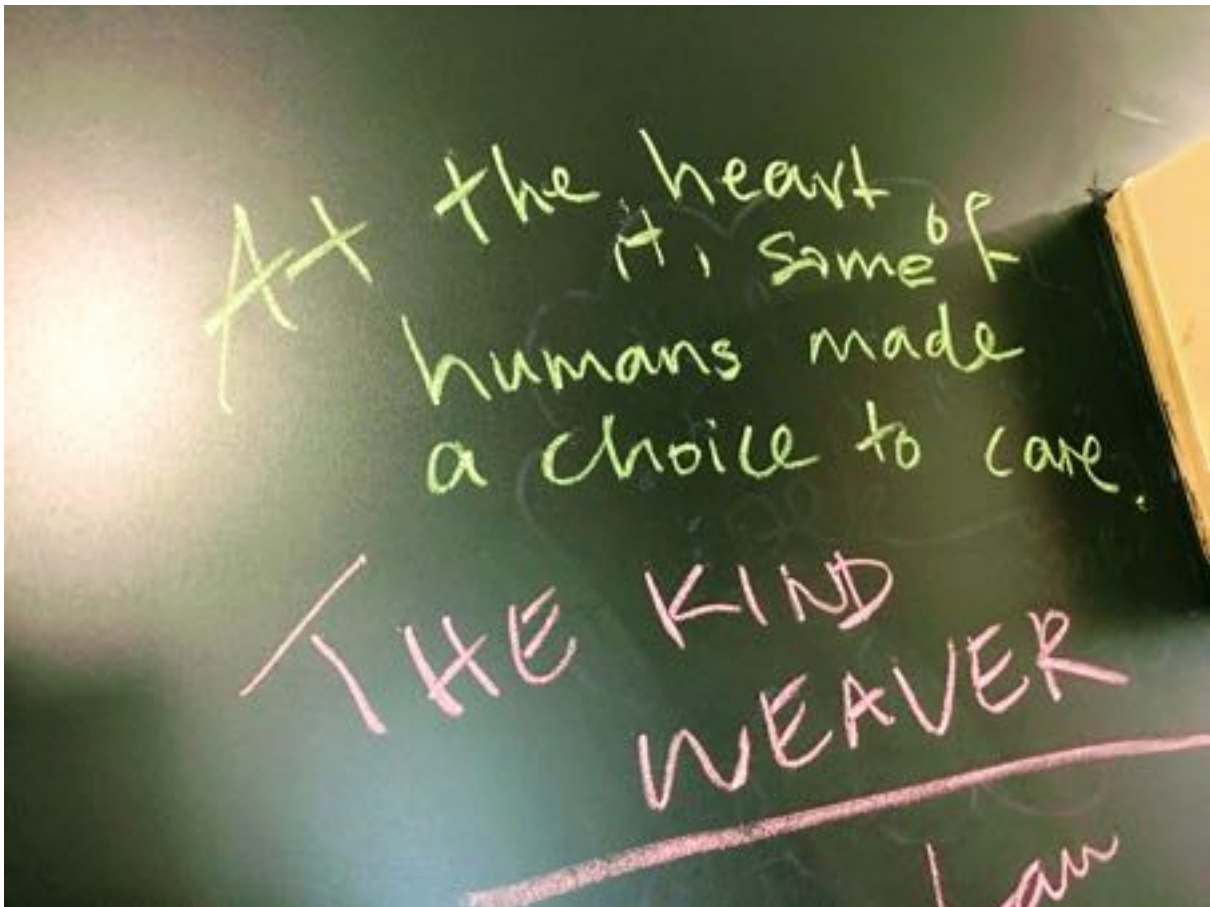 At the heart of
it, some
humans made
a choice to care.
THE KIND
WEAVER